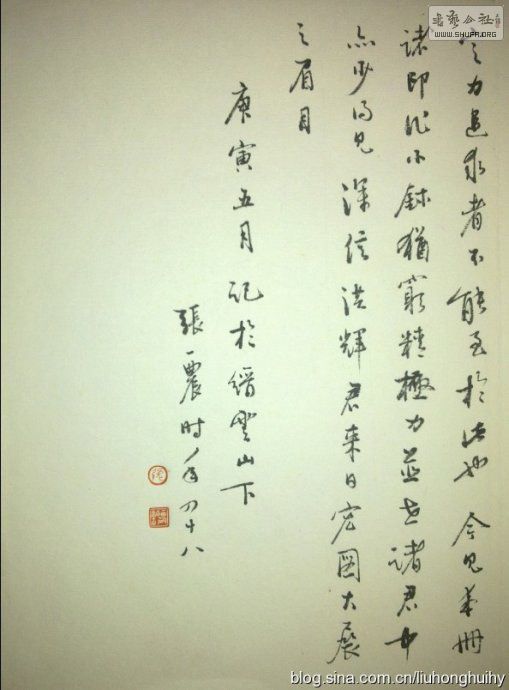 之力追求者不能至於此也今见本册
诸印作小鉢猶窮精極力並世諸君中
亦少得见深信洪輝君来日宏图大展
之眉目
庚寅五月記於縉雲山下
張一農时年四十八
書藝公社
WWW.SHUFA.ORG
blog.sina.com.cn/liuhonghuihy